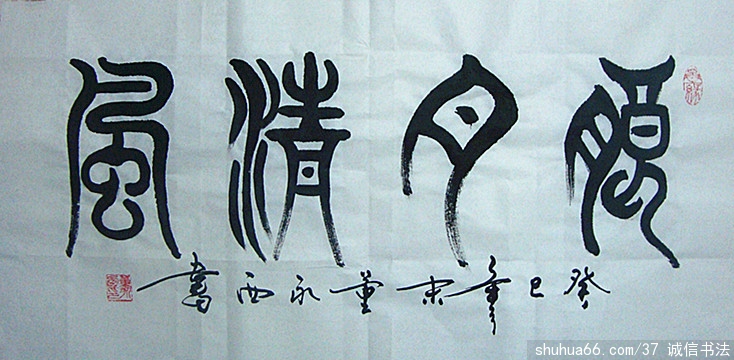 朗月清風
癸巳年末董永西書
shuhua66.com/37 诚信书法